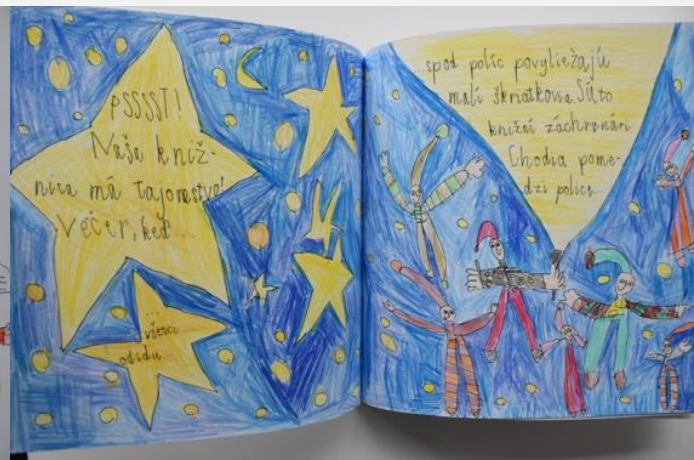 PSSSST!
Naša kniž-
nica má tajomstvo!
Večer, keď...
...
všetci
odídu...
...spod políc povyliezajú
malí škriatkovia. Sú to
knižní záchranári.
Chodia pome-
dzi police...